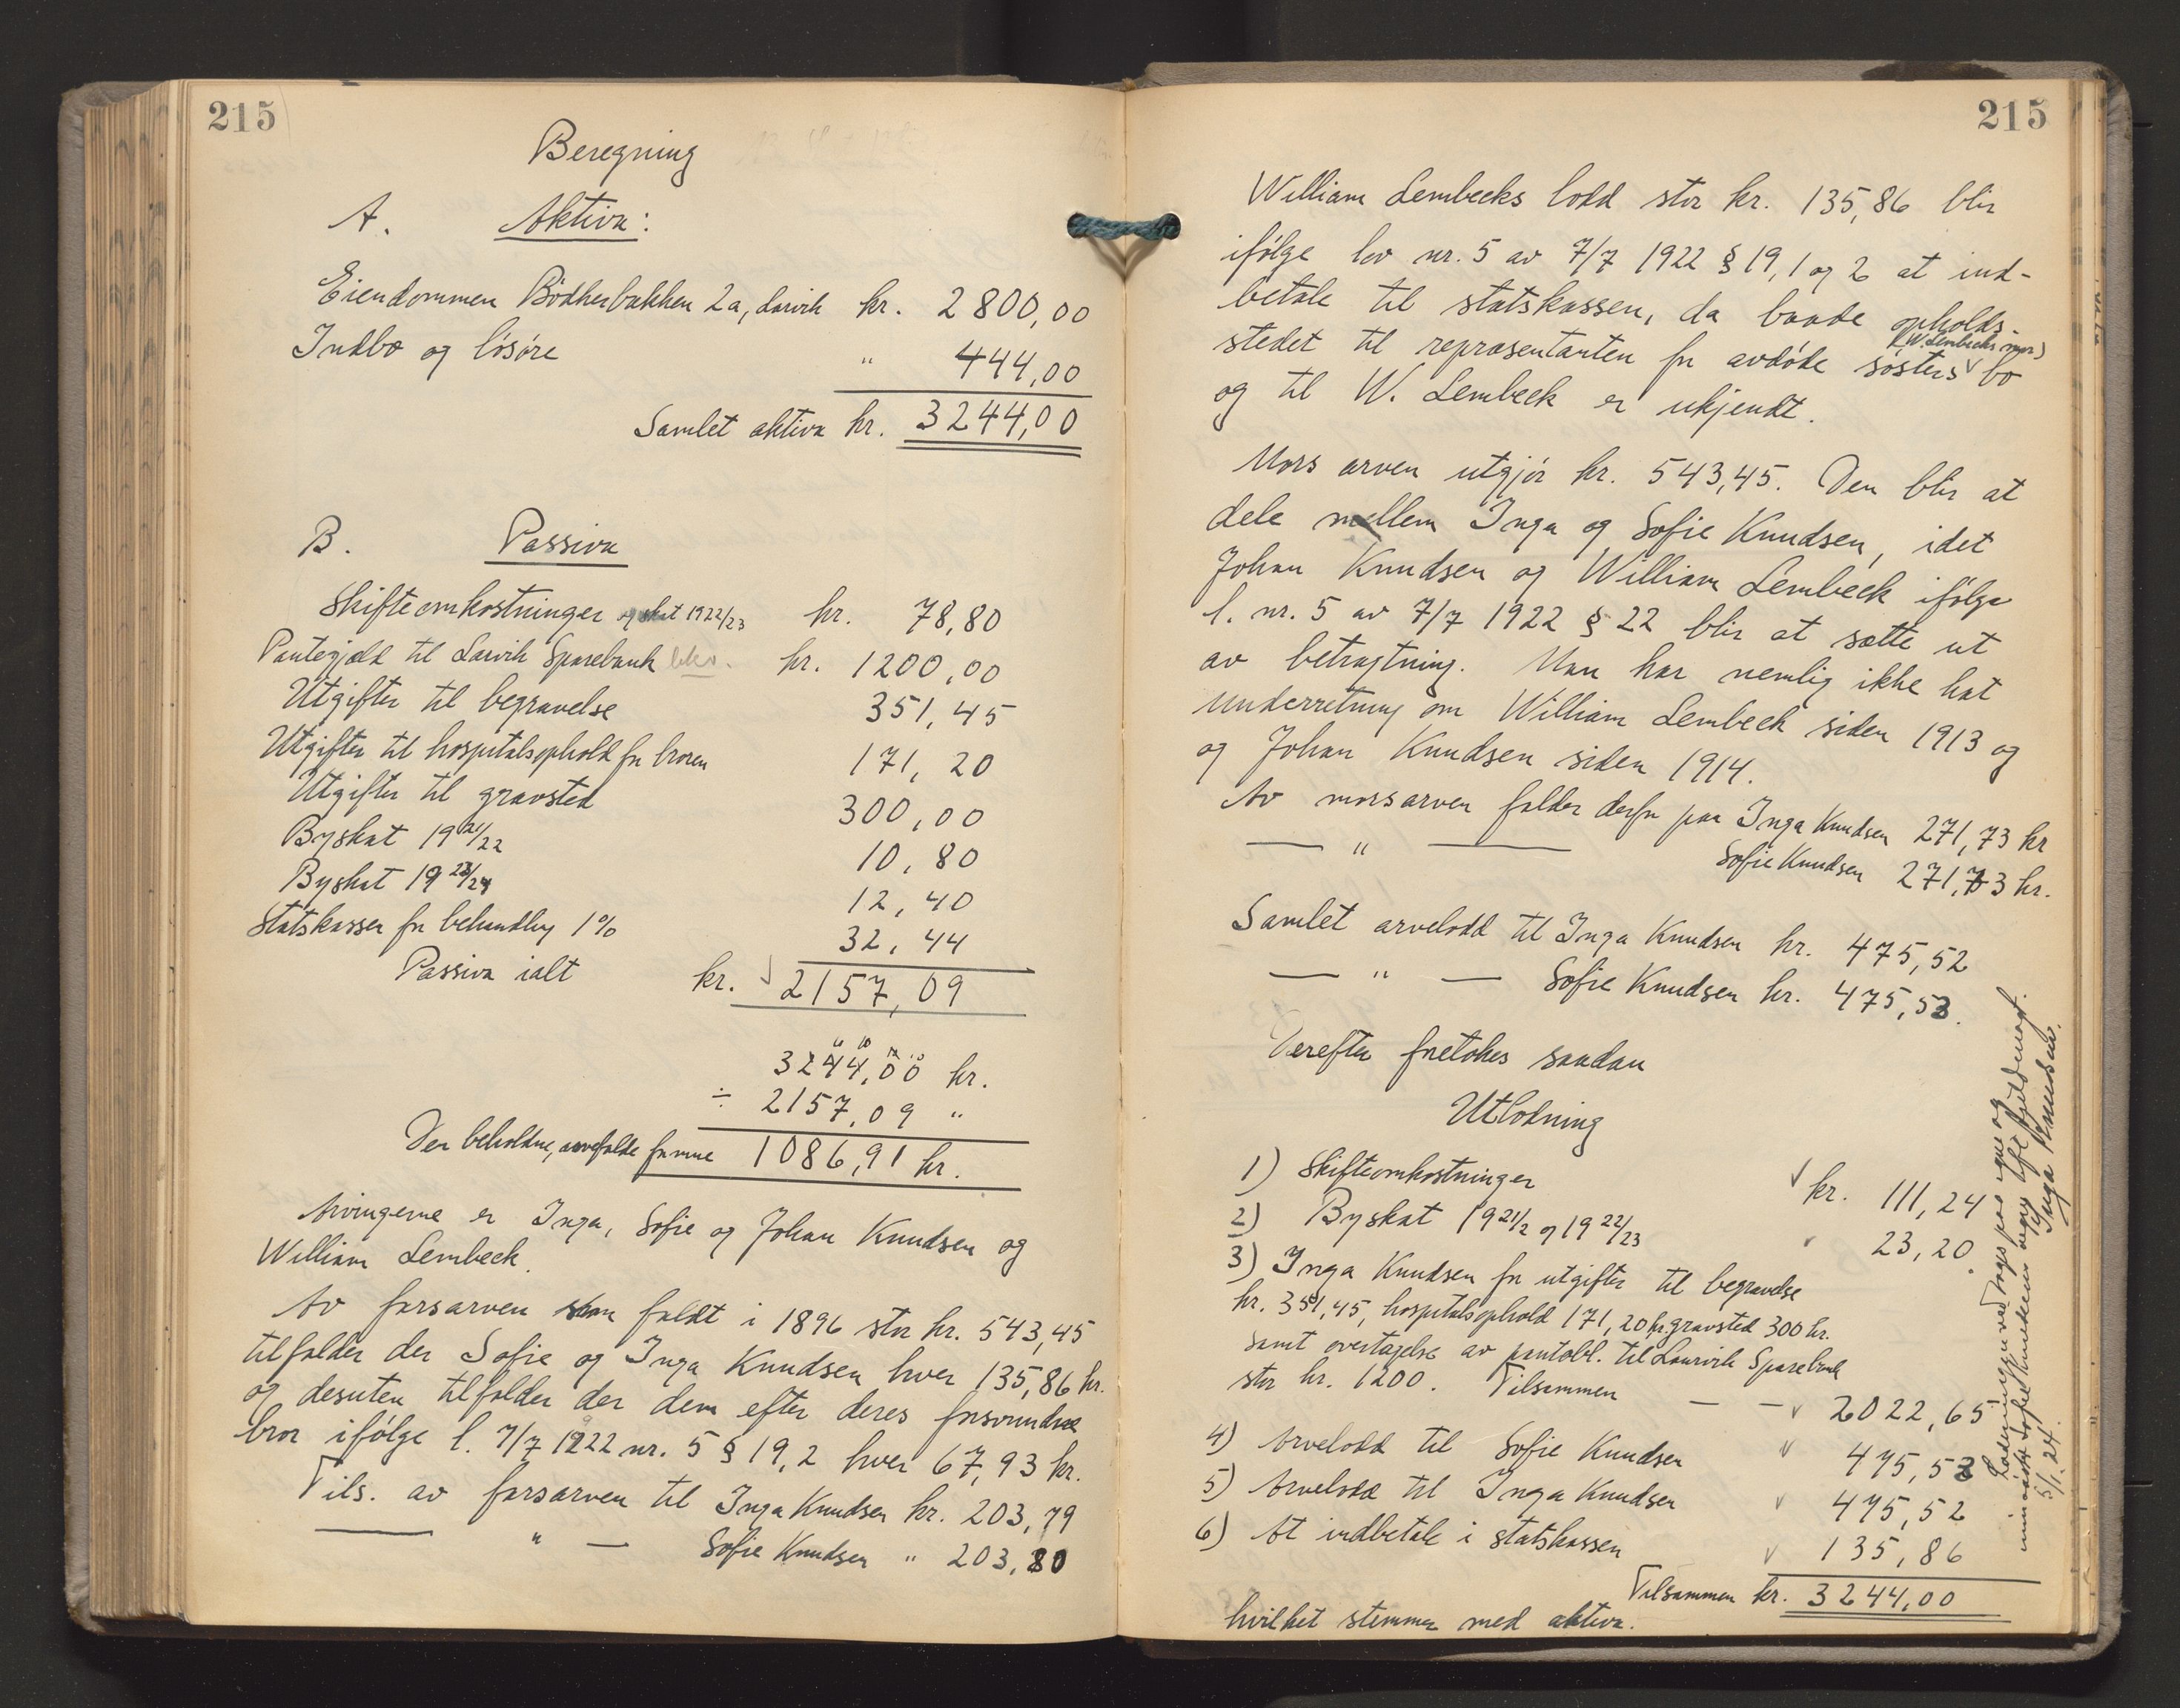 215
Beregning
A. Aktiva:
Eiendommen Bödkerbakken 2a, Larvik kr. 2800,00
Indbo og lösöre " 444,00
Samlet aktiva kr. 3244,00
B. Passiva
Skifteomkostninger og skat 1922/23 kr. 78,80
Pantegjæld til Larvik Sparebank kr. 1200,00
Utgifter til begravelse 351,45
Utgifter til hospitalsophold for broren 171,20
Utgifter til gravsted 300,00
Byskat 1921/22 10,80
Byskat 1923/24 12,40
Statskassen for behandling 1% 32,44
Passiva ialt kr. 2157,09
3244,00 kr.
÷ 2157,09 "
Den beholdne, arvefaldne formue 1086,91 kr.
Arvingerne er Inga, Sofie og Johan Knudsen og
William Lembeck.
Av farsarven som faldt i 1896 stor kr. 543,45
tilfalder der Sofie og Inga Knudsen hver 135,86 kr.
og desuten tilfalder der dem efter deres forsvundne
bror ifölge l. 7/7 1922 nr. 5 § 19,2 hver 67,93 kr.
Tils. av farsarven til Inga Knudsen kr. 203,79
— " — Sofie Knudsen " 203,80
215
William Lembecks lodd stor kr. 135,86 blir
ifölge lov nr. 5 av 7/7 1922 § 19, 1 og 2 at ind-
betale til statskassen, da baade opholds-
(W. Lembecks mor)
stedet til repræsentanten for avdöde sösters bo
og til W. Lembeck er ukjendt.
Mors arven utgjör kr. 543,45. Den blir at
dele mellem Inga og Sofie Knudsen, idet
Johan Knudsen og William Lembeck ifölge
l. nr. 5 av 7/7 1922 § 22 blir at sætte ut
av betragtning. Man har nemlig ikke hat
underretning om William Lembeck siden 1913 og
og Johan Knudsen siden 1914.
Av morsarven falder derfor paa Inga Knudsen 271,73 kr
— " — Sofie Knudsen 271,73 kr.
Samlet arvelodd til Inga Knudsen kr. 475,52
— " — Sofie Knudsen kr. 475,53.
Derefter foretokes saadan
Utlodning
1) Skifteomkostninger kr. 111,24
2) Byskat 1921/2 og 1922/23 23,20.
3) Inga Knudsen for utgifter til begravelse
kr. 351,45, hospitalsophold 171,20 kr. gravsted 300 kr.
samt overtagelse av pantobl. til Laurvik Sparebank
stor kr. 1200. Tilsammen — — 2022,65
4) Arvelodd til Sofie Knudsen 475,53
5) Arvelodd til Inga Knudsen 475,52
6) At indbetale i statskassen 135,86
Tilsammen kr. 3244,00
hvilket stemmer med aktiva.
paa egne og
söster Sofie Knudsens vegne ifölge fuldmagt.
5/1. 24. Inga Knudsen.